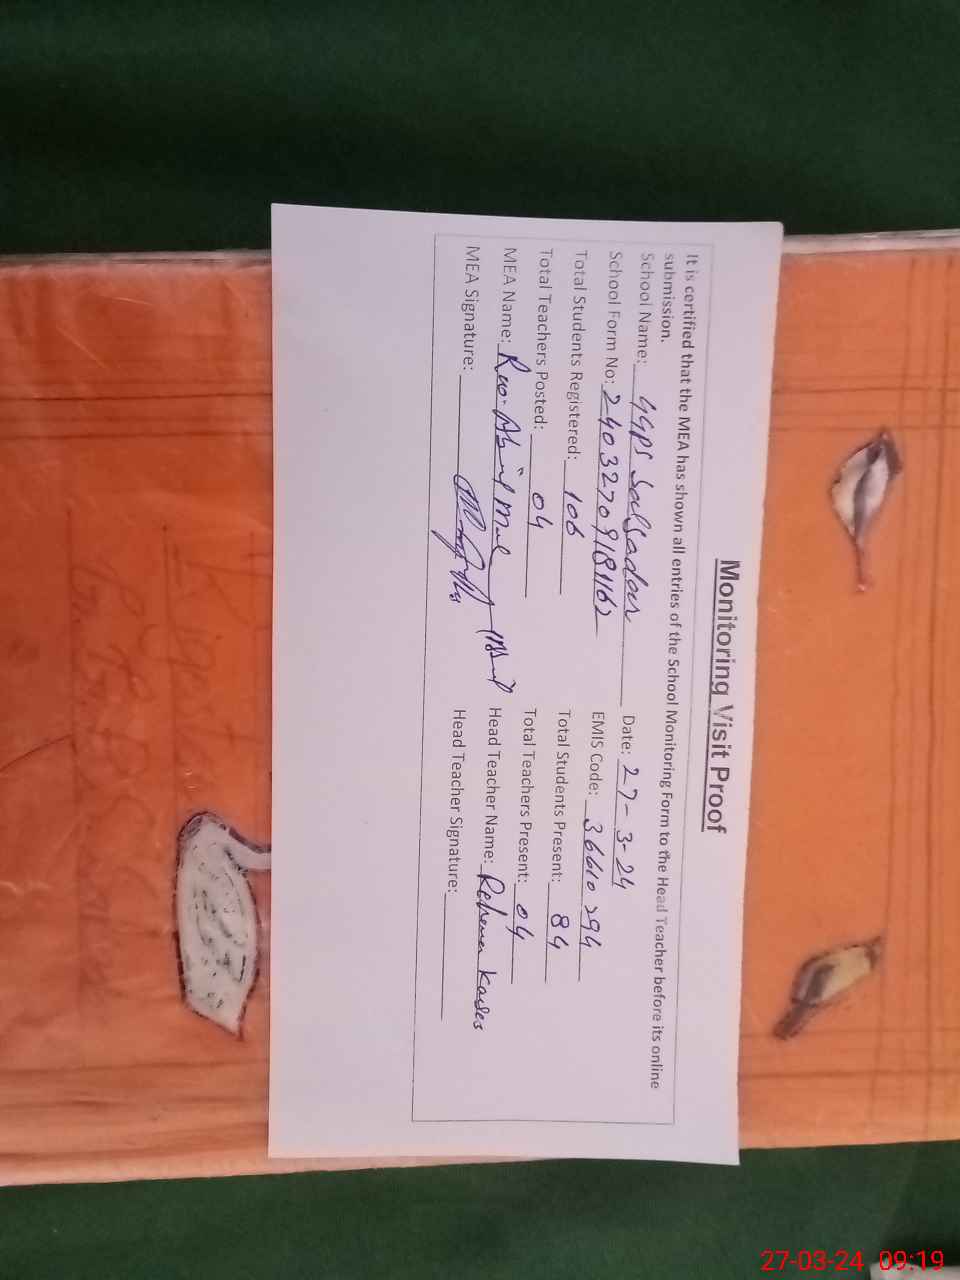 Monitoring Visit Proof
It is certified that the MEA has shown all entries of the School Monitoring Form to the Head Teacher before its online
submission.
School Name: GGPS Date: 27-3-24
School Form No: 24032709181162 EMIS Code: 36610294
Total Students Registered: 106 Total Students Present: 84
Total Teachers Posted: 04 Total Teachers Present: 04
MEA Name: Rao Head Teacher Name: Rehana
MEA Signature: Head Teacher Signature:
27-03-24 09:19